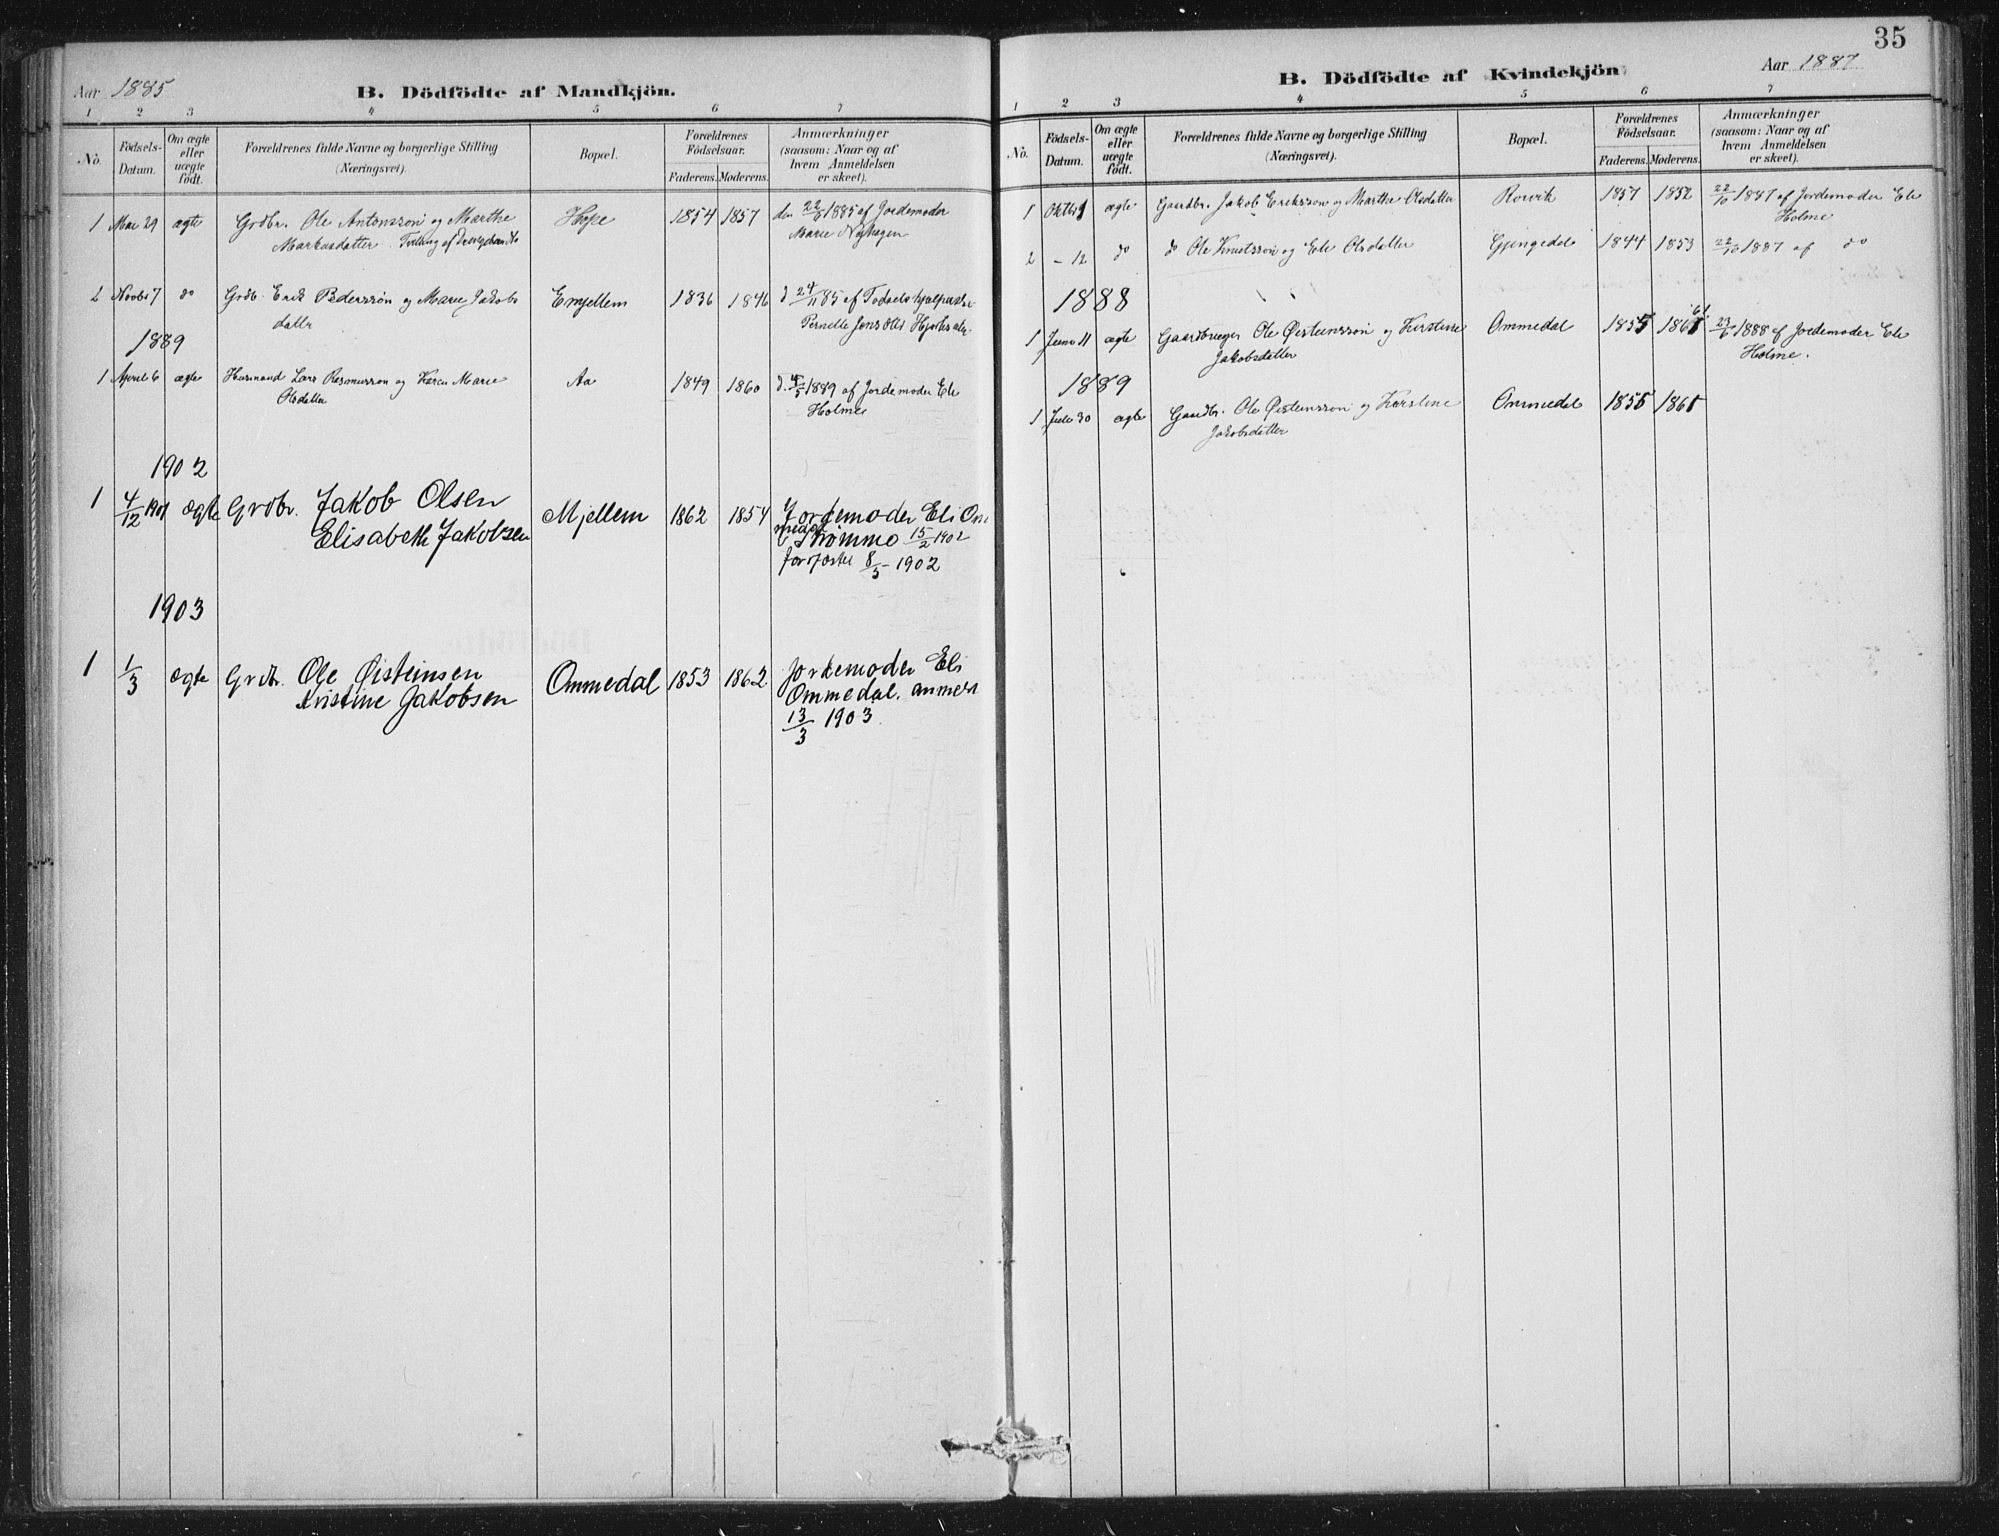 Aar 1885
B. Dödfödte af Mandkjön.
1 2 3 4 5 6 7
No.
Födsels-Datum.
Om ægte eller uægte født.
Forældrenes fulde Navne og borgerlige Stilling (Næringsvei).
Bopæl.
Forældrenes Födselsaar.
Faderens. Moderens.
Anmærkninger (saasom: Naar og af hvem Anmeldelsen er skeet).
1 Mai 29 ægte Grdbr. Ole Antonssøn og Marthe Hope 1854 1857 den 22/6 1885 af Jordemoder
Markusdatter. Tvilling af Marie Nyhagen
2 Novbr 7 do Grdb. Erik Pederssøn og Marie Jakobs Emjellem 1836 1846 d 24/11 85 af
datter Pernelle Jensdtr
1889
1 April 6 ægte Husmand Lars Rasmusson og Karen Marie Aa 1849 1860 d. 4/5 1889 af Jordemoder Eli
Olsdatter Holme
1902
1 4/12 1901 ægte Grdbr. Jakob Olsen Mjellem 1862 1854 Jordemoder Eli Om
Elisabeth Jakobsen medal Strømmo 15/2 1902
8/5 - 1902
1903
1 1/3 ægte Grdbr. Ole Øisteinsen Ommedal 1853 1862 Jordemoder Eli
Kristine Jakobsen Ommedal. anmeldt
13/3 1903.
35
B. Dödfödte af Kvindekjön
Aar 1887
1 2 3 4 5 6 7
No.
Födsels-Datum.
Om ægte eller uægte födt.
Forældrenes fulde Navne og borgerlige Stilling (Næringsvei).
Bopæl.
Forældrenes Födselsaar.
Faderens. Moderens.
Anmærkninger (saasom: Naar og af hvem Anmeldelsen er skeet).
1 Oktbr 1 ægte Gaardbr. Jakob Eriksson og Marthe Olsdatter Rørvik 1857 1852 22/10 1887 af Jordemoder Eli
Holme
2 - 12 do do Ole Knutssøn og Eli Olsdatter Gjengedal 1844 1853 22/10 1887 af do
1888
1 Juni 11 ægte Gaardbruger Ole Øisteinssøn og Kirstine Ommedal 1855 1861 61 23/6 1888 af Jordemoder Eli
Jakobsdatter Holme.
1889
1 Juli 30 ægte Gaardbr. Ole Øisteinssøn og Kirstine Ommedal 1855 1861
Jakobsdatter